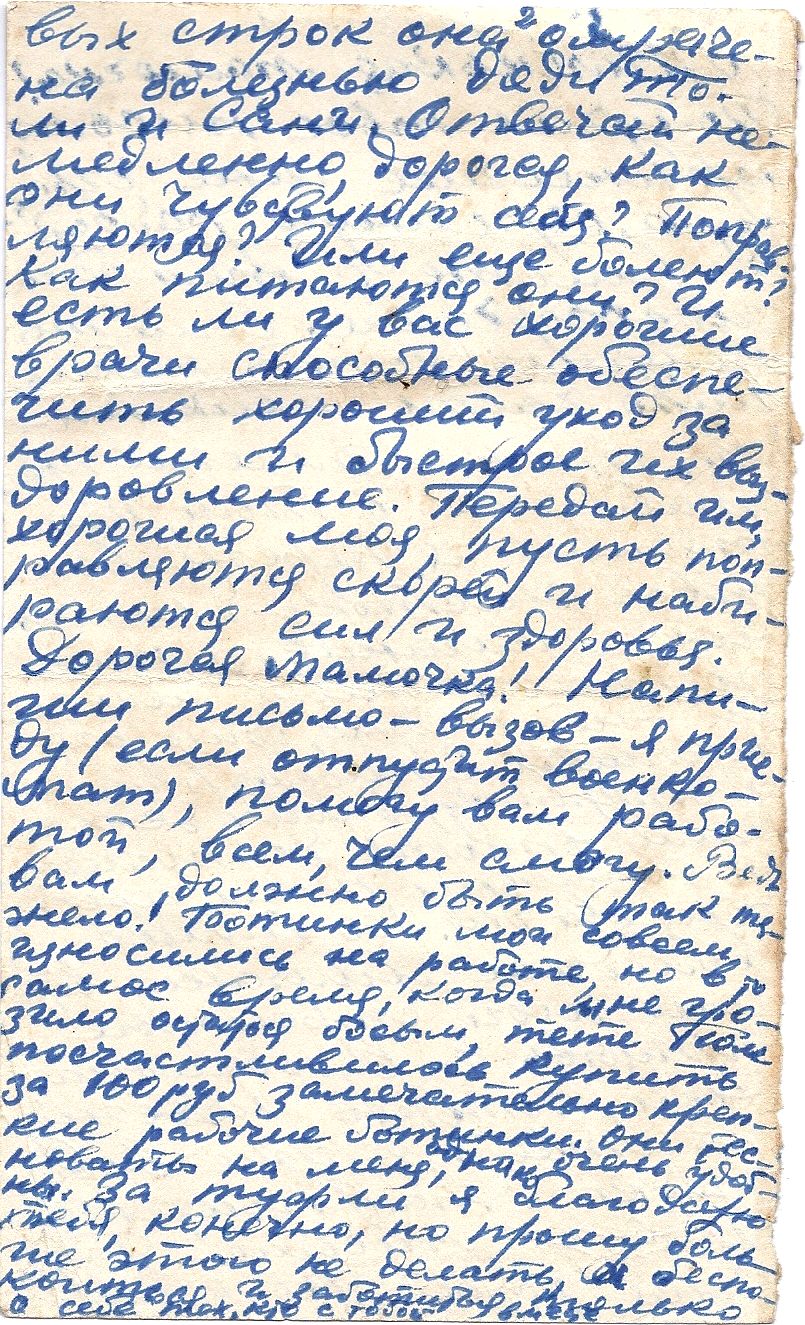 вых строк она омраче-
на болезнью дяди То-
ли и Сани. Отвечай не-
медленно, дорогая, как
они чувствуют себя? Поправ-
ляются? Или еще болеют?
Как питаются они? И
есть ли у вас хорошие
врачи способные обеспе-
чить хороший уход за
ними и быстрое их выз-
доровление. Передай им,
хорошая моя, пусть поп-
равляются скорей и наби-
раются сил и здоровья.
Дорогая мамочка! Напи-
ши письмо-вызов - я прие-
ду (если отпустит военко-
мат), помогу вам рабо-
той, всем, чем смогу. Ведь
вам, должно быть так тя-
жело. Ботинки мои совсем
износились на работе, но в то
самое время, когда мне гро-
зило остаться босым, тете
посчастливилось купить
за 100 руб замечательно креп-
кие рабочие ботинки. Они тес-
новаты на меня, однако очень удоб-
ны. За туфли я благодарю
тебя, конечно, но прошу боль-
ше этого не делать, а беспо-
коиться и заботиться только
о себе и тех, кто с тобой вместе